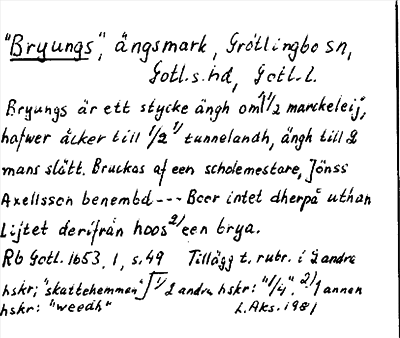 "Bryungs", ängsmark, Grötlingbo sn,
Gotl. s. hd, Gotl. l.
Bryungs är ett stycke ängh om 1/2 marckeleij,
hafwer åcker till 1/2 1/ tunnelandh, ängh till 2
mans slått. Bruckas af een scholemestare, Jönss
Axellsson benembd --- Boer intet dherpå uthan
Lijtet derifrån hoos 2/ een brya.
Rb Gotl. 1653, 1, s. 49 Tillägg t. rubr. i 2 andra
hskr; "skattehemman" 1/ 2 andra hskr: "1/4". 2/ 1 annen
hskr: "weedh" L. Aks. 1981